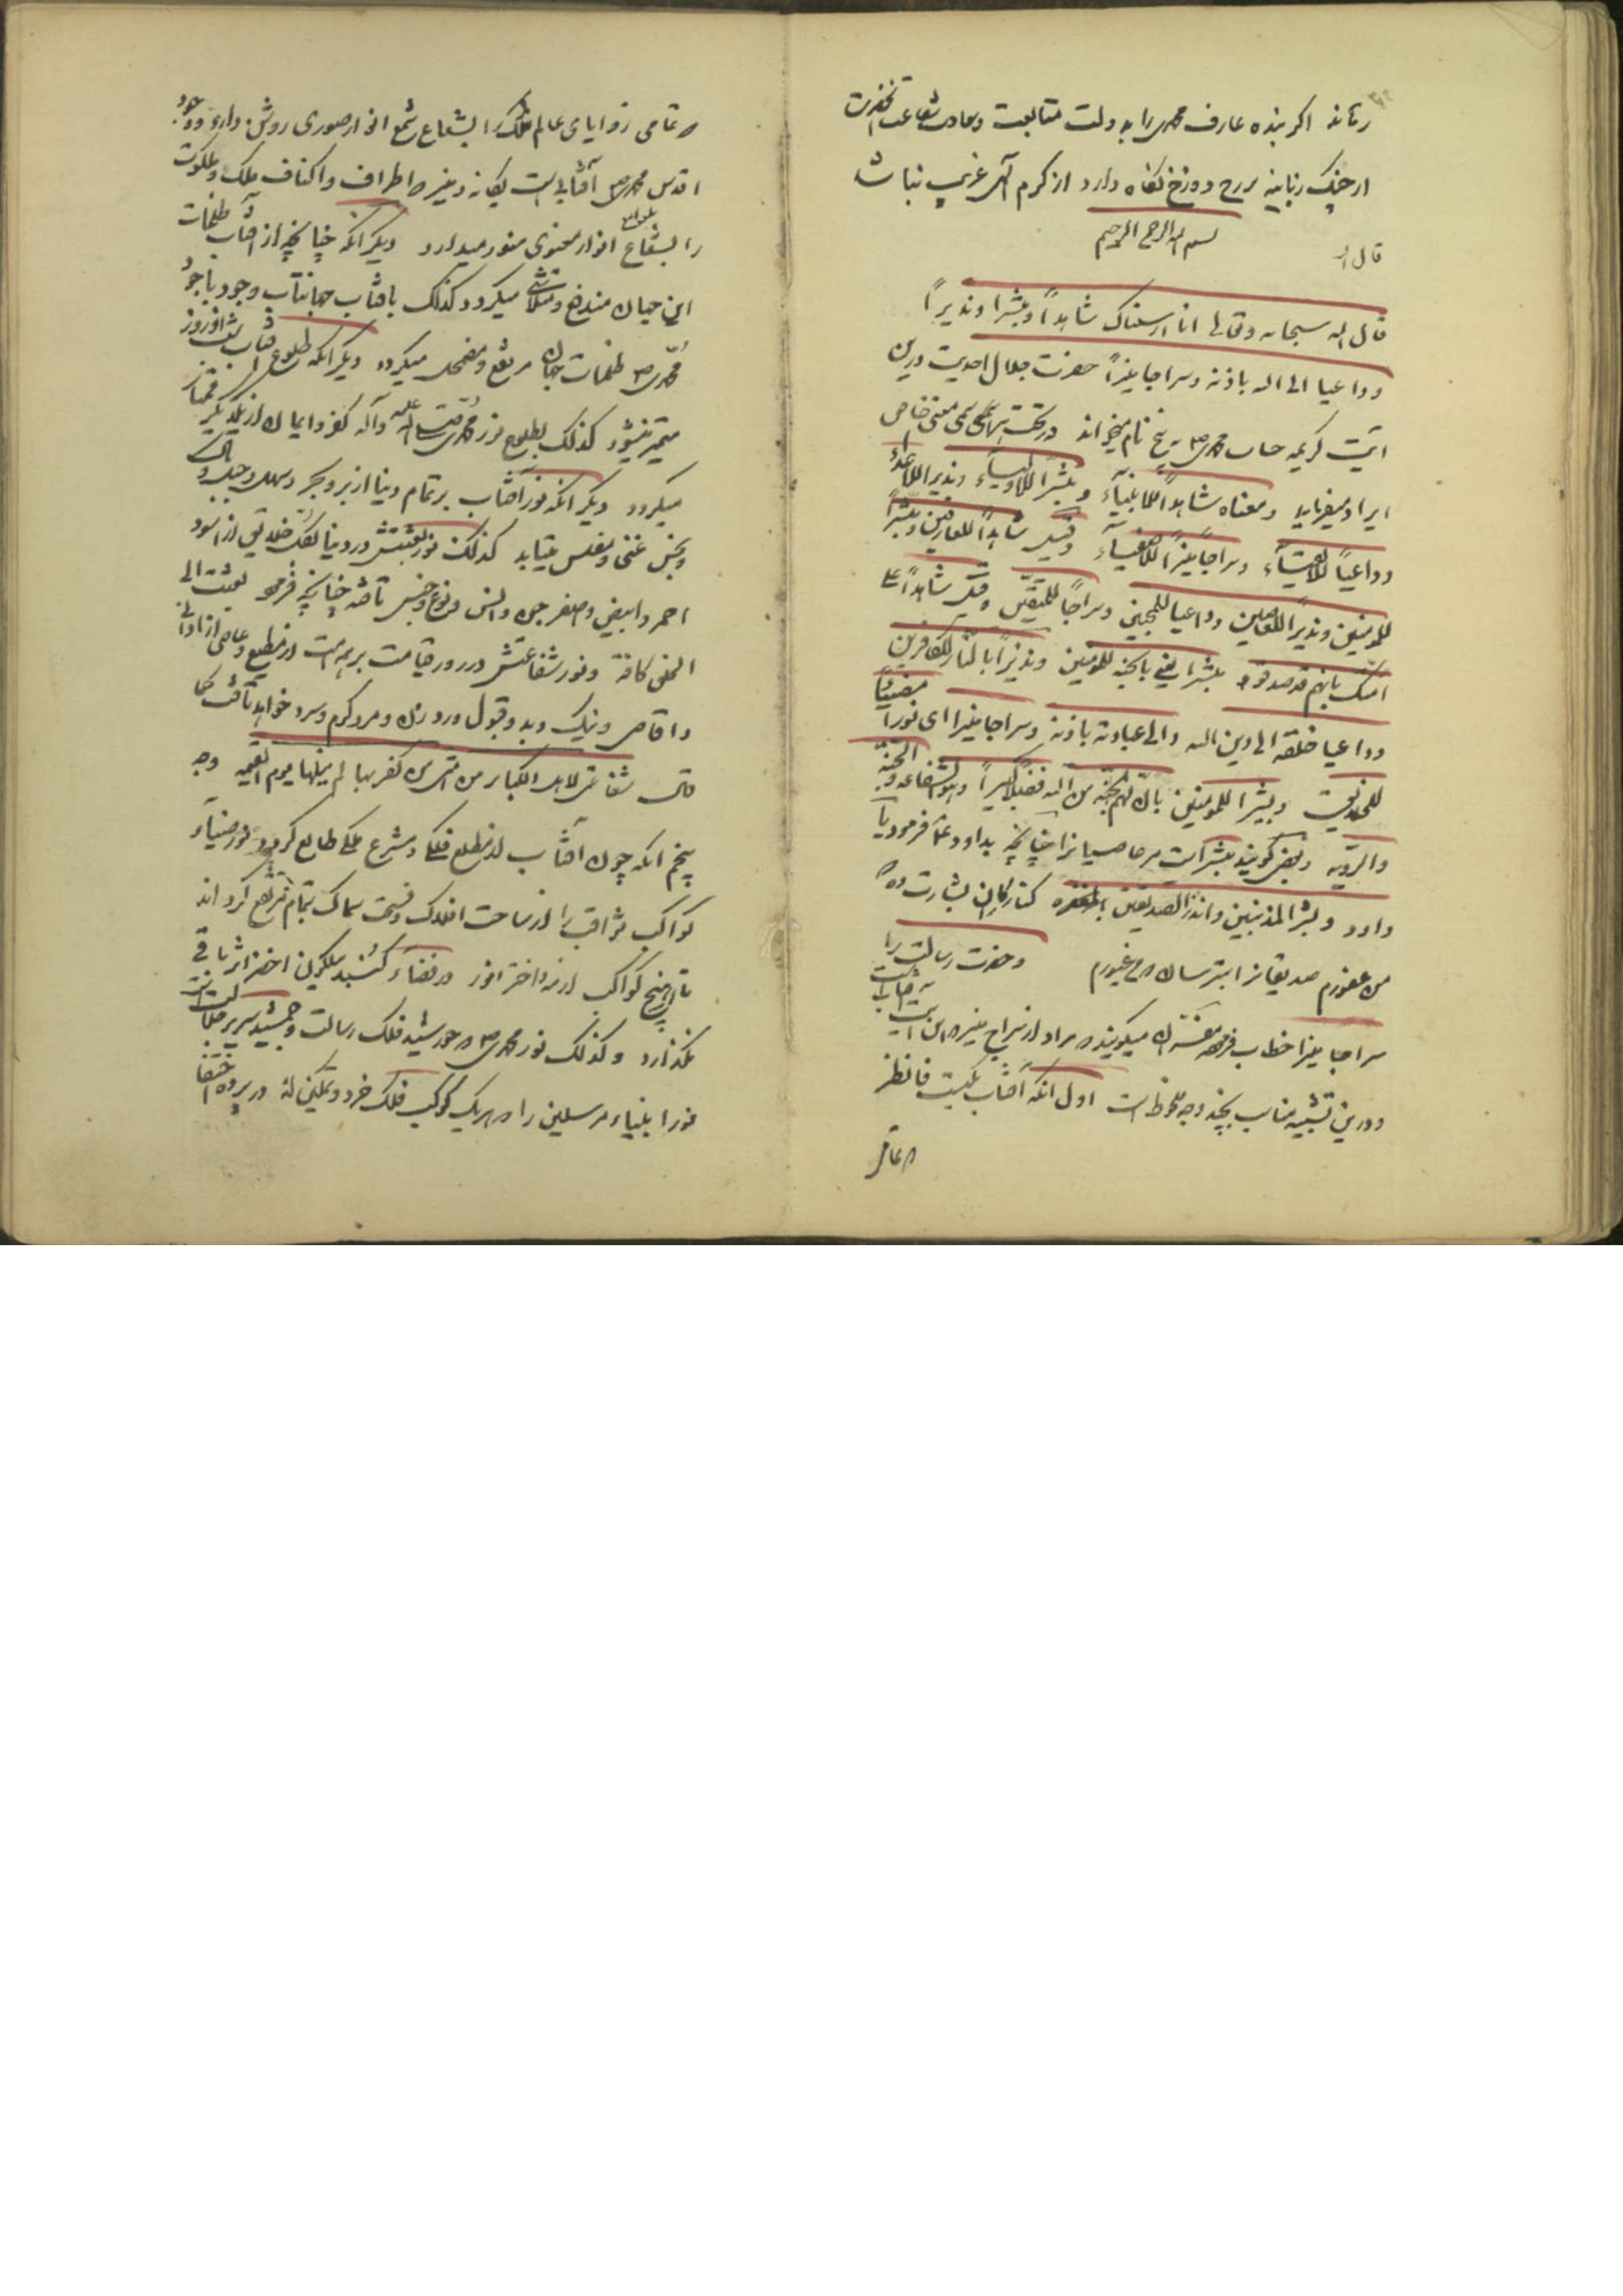 رساند اگر بنده عارف محمدی را به دولت متابعت و سعادت شفاعت آنحضرت
از چنگ زبانیه دوزخ نگاه دارد از کرم آلهی غریب نباشد
بسم الله الرحمن الرحیم
قال الله
قال الله سبحانه وتعالی انا ارسلناک شاهداً ومبشرا ونذیراً
وداعیا الی الله باذنه وسراجا منیراً حضرت جلال احدیت درین
آیت کریمه جناب محمدی ص به پنج نام میخواند و در تحت هر اسمی معنی خاص
ایراد میفرماید ومعناه شاهداً للانبیآء ومبشراً للاولیآء ونذیرا للاعدآء
وداعیاً للاتقیآء وسراجاً منیراً للاصفیآء وقیل شاهداً للعارفین ومبشراً
للمومنین ونذیراً للعاصین وداعیا للمحبین وسراجاً للمتقین وقیل شاهداً علی
امتک بانهم قد صدقوه مبشرا یعنی بالجنه للمومنین ونذیراً بالنار للکافرین
وداعیا خلقه الی دین الله والی عبادته باذنه وسراجا منیرا ای نوراً مضیئاً
وبشرا للمومنین بان لهم الجنة من الله فضلاً کبیراً وهو الشفاعه والجنة
والرویه وبعض گویند مبشر است مر عاصیانرا چنانچه بداود ع فرمود یا
داود وبشر المذنبین وانذر الصدیقین کناه کارانرا بشارت ده که
من غفورم صدیقانرا بترسان که من غیورم وحضرت رسالت را
سراجا منیرا خطاب فرمود مفسران میگویند که مراد از سراج منیر آفتابست
ودرین تشبیه مناسب بچند وجه ملحوظ است اول آنکه آفتاب یکیست فانظر
که تمام
که تمامی زوایای عالم ملک را بشعاع شمع انوار صوری روشن دارد ووجود
اقدس محمدی ص آفتابی است یگانه ومنیر که اطراف واکناف ملک وملکوت
را بشعاع انوار معنوی منور میدارد دیگر آنکه چنانچه از آفتاب ظلمات
این جهان مندفع ومتلاشی میگردد کذلک بآفتاب جهانتاب وجود باجود
محمدی ص ظلمات جهان مرتفع ومضمحل میگردد دیگر آنکه بطلوع آفتاب شب از روز
متمیز میشود کذلک بطلوع نور محمدی صلی الله علیه وآله کفر وایمان از یکدیگر ممتاز
میگردد دیگر آنکه نور آفتاب بر تمام دنیا از بر وبحر وسهل وجبل و
وبخش غنی ومفلس میتابد کذلک نور بعثتش در دنیا بکافه خلایق از اسود
احمر وابیض واصفر جن وانس ونوع وجنس تافته چنانچه فرمود بعثت الی
الخلق کافة ونور شفاعتش در روز قیامت بر همه امت از مطیع وعاصی از ادانی
واقاصی ونیک وبد وقبول ورد وزن ومرد وگرم وسرد خواهد تافت کما
قال شفاعتی لاهل الکبایر من امتی من کفر بها لم ینلها یوم القیمه وجه
پنجم آنکه چون آفتاب از مطلع فلکی ومشرع ملکی طالع گردد نور وضیآء
کواکب ثواقب را از ساحت افلاک وفسحت سماک بتمام مرتفع گرداند
کواکب از ماه واختر انور در فضآء گنبد نیلگون اخضر اثر باقی
نگذارد وکذلک نور محمدی ص که خورشید فلک رسالت وجمشید سریر جلالت است
نور انبیاء ومرسلین را که هر یک کوکب فلک خرد وتمکین اند در پرده اختفا